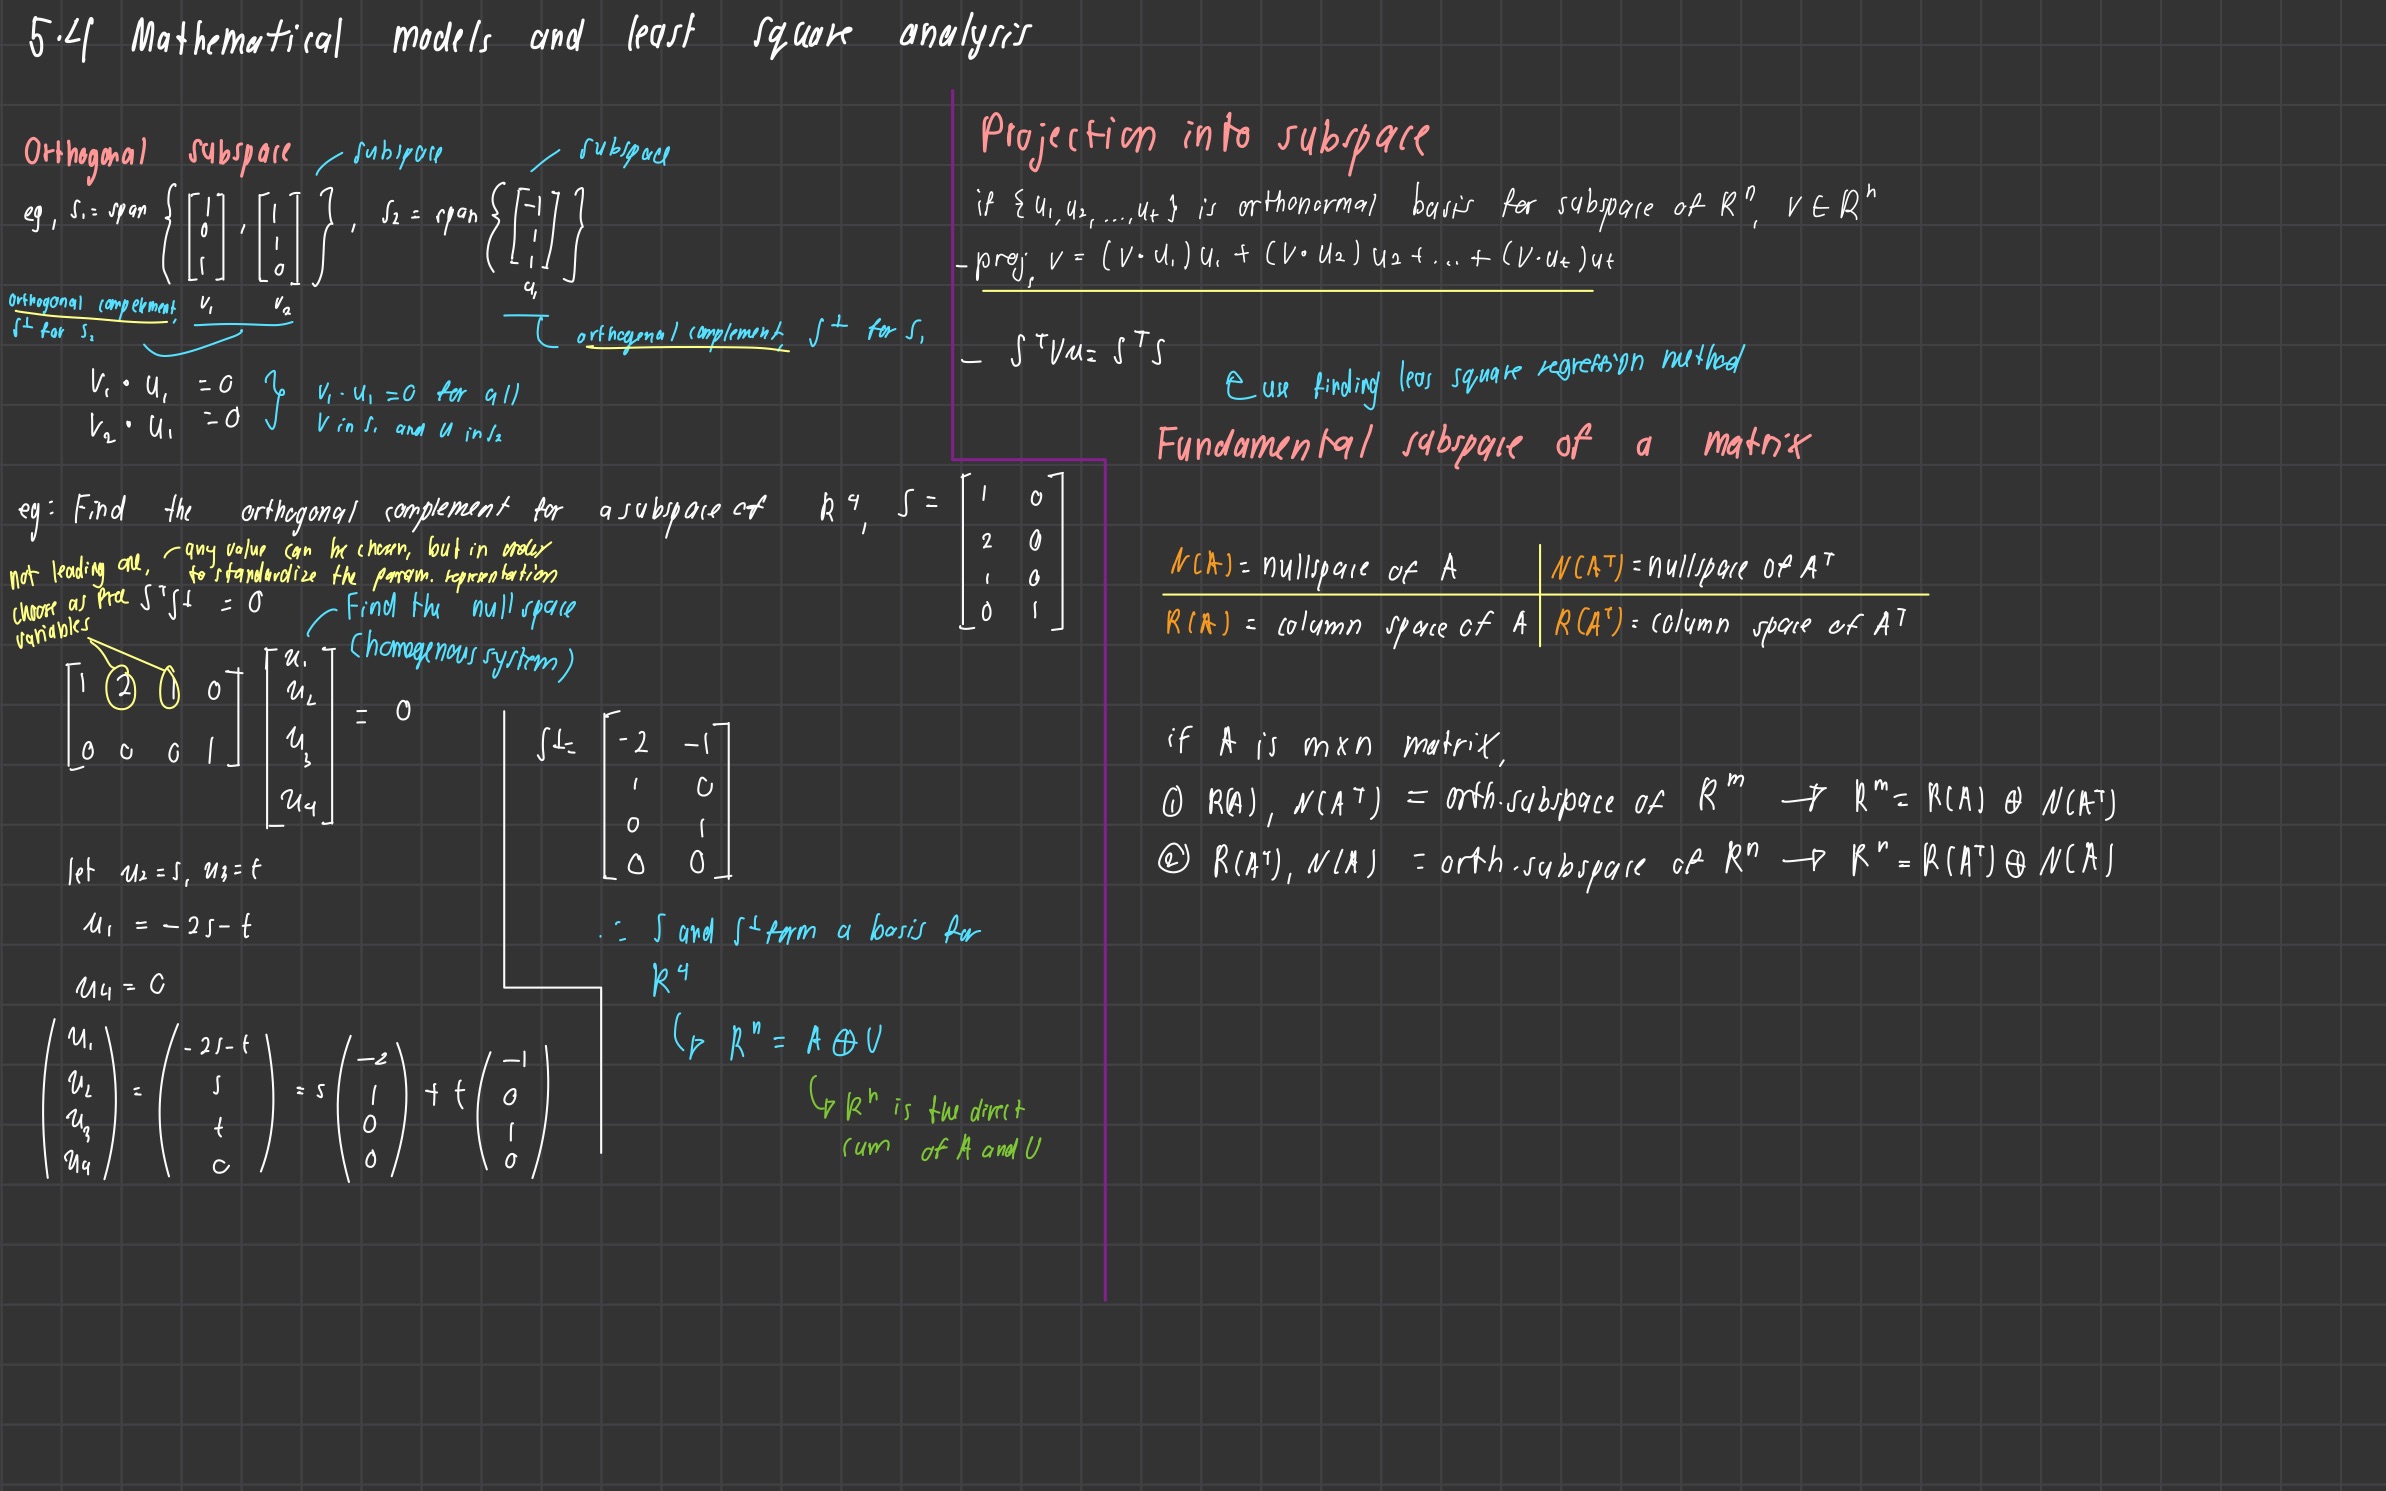 5.4 Mathematical models and least square analysis
Orthogonal subspace
subspace
subspace
eg, S₁ = span { [1 0 1], [1 1 0] }, S₂ = span { [-1 1 1] }
v₁ v₂
u₁
orthogonal complement,
S⊥ for S₂
orthogonal complement, S⊥ for S₁
V₁ • U₁ = 0
V₂ • U₁ = 0
V₁ · U₁ = 0 for all
V in S₁ and U in S₂
eg: Find the orthogonal complement for a subspace of R⁴, S = [1 0; 2 0; 1 0; 0 1]
not leading one,
choose as free
variables
any value can be chosen, but in order
to standardize the param. representation
SᵀS⊥ = 0
Find the null space
(homogenous system)
[1 2 1 0; 0 0 0 1] [u₁; u₂; u₃; u₄] = 0
let u₂ = s, u₃ = t
u₁ = -2s - t
u₄ = 0
(u₁; u₂; u₃; u₄) = (-2s-t; s; t; 0) = s(-2; 1; 0; 0) + t(-1; 0; 1; 0)
S⊥ = [-2 -1; 1 0; 0 1; 0 0]
∴ S and S⊥ form a basis for
R⁴
↳ Rⁿ = A ⊕ U
↳ Rⁿ is the direct
sum of A and U
Projection into subspace
if {u₁, u₂, ..., ut} is orthonormal basis for subspace of Rⁿ, V ∈ Rⁿ
- projₛ v = (V • U₁) U₁ + (V • U₂) U₂ + ... + (V • Ut) Ut
- SᵀVu = SᵀS
use finding leas square regression method
Fundamental subspace of a matrix
N(A) = nullspace of A
N(Aᵀ) = nullspace of Aᵀ
R(A) = column space of A
R(Aᵀ) = column space of Aᵀ
if A is m×n matrix,
① R(A), N(Aᵀ) = orth.subspace of Rᵐ → Rᵐ = R(A) ⊕ N(Aᵀ)
② R(Aᵀ), N(A) = orth.subspace of Rⁿ → Rⁿ = R(Aᵀ) ⊕ N(A)